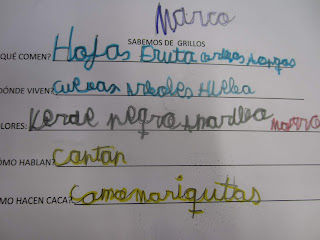 Marco
SABEMOS DE GRILLOS
QUÉ COMEN? Hojas Fruta
DÓNDE VIVEN? cuevas Arboles Hieba
LORES: Verde negro Amarillo
ÓMO HABLAN? cantan
MO HACEN CACA? Como mariquitas